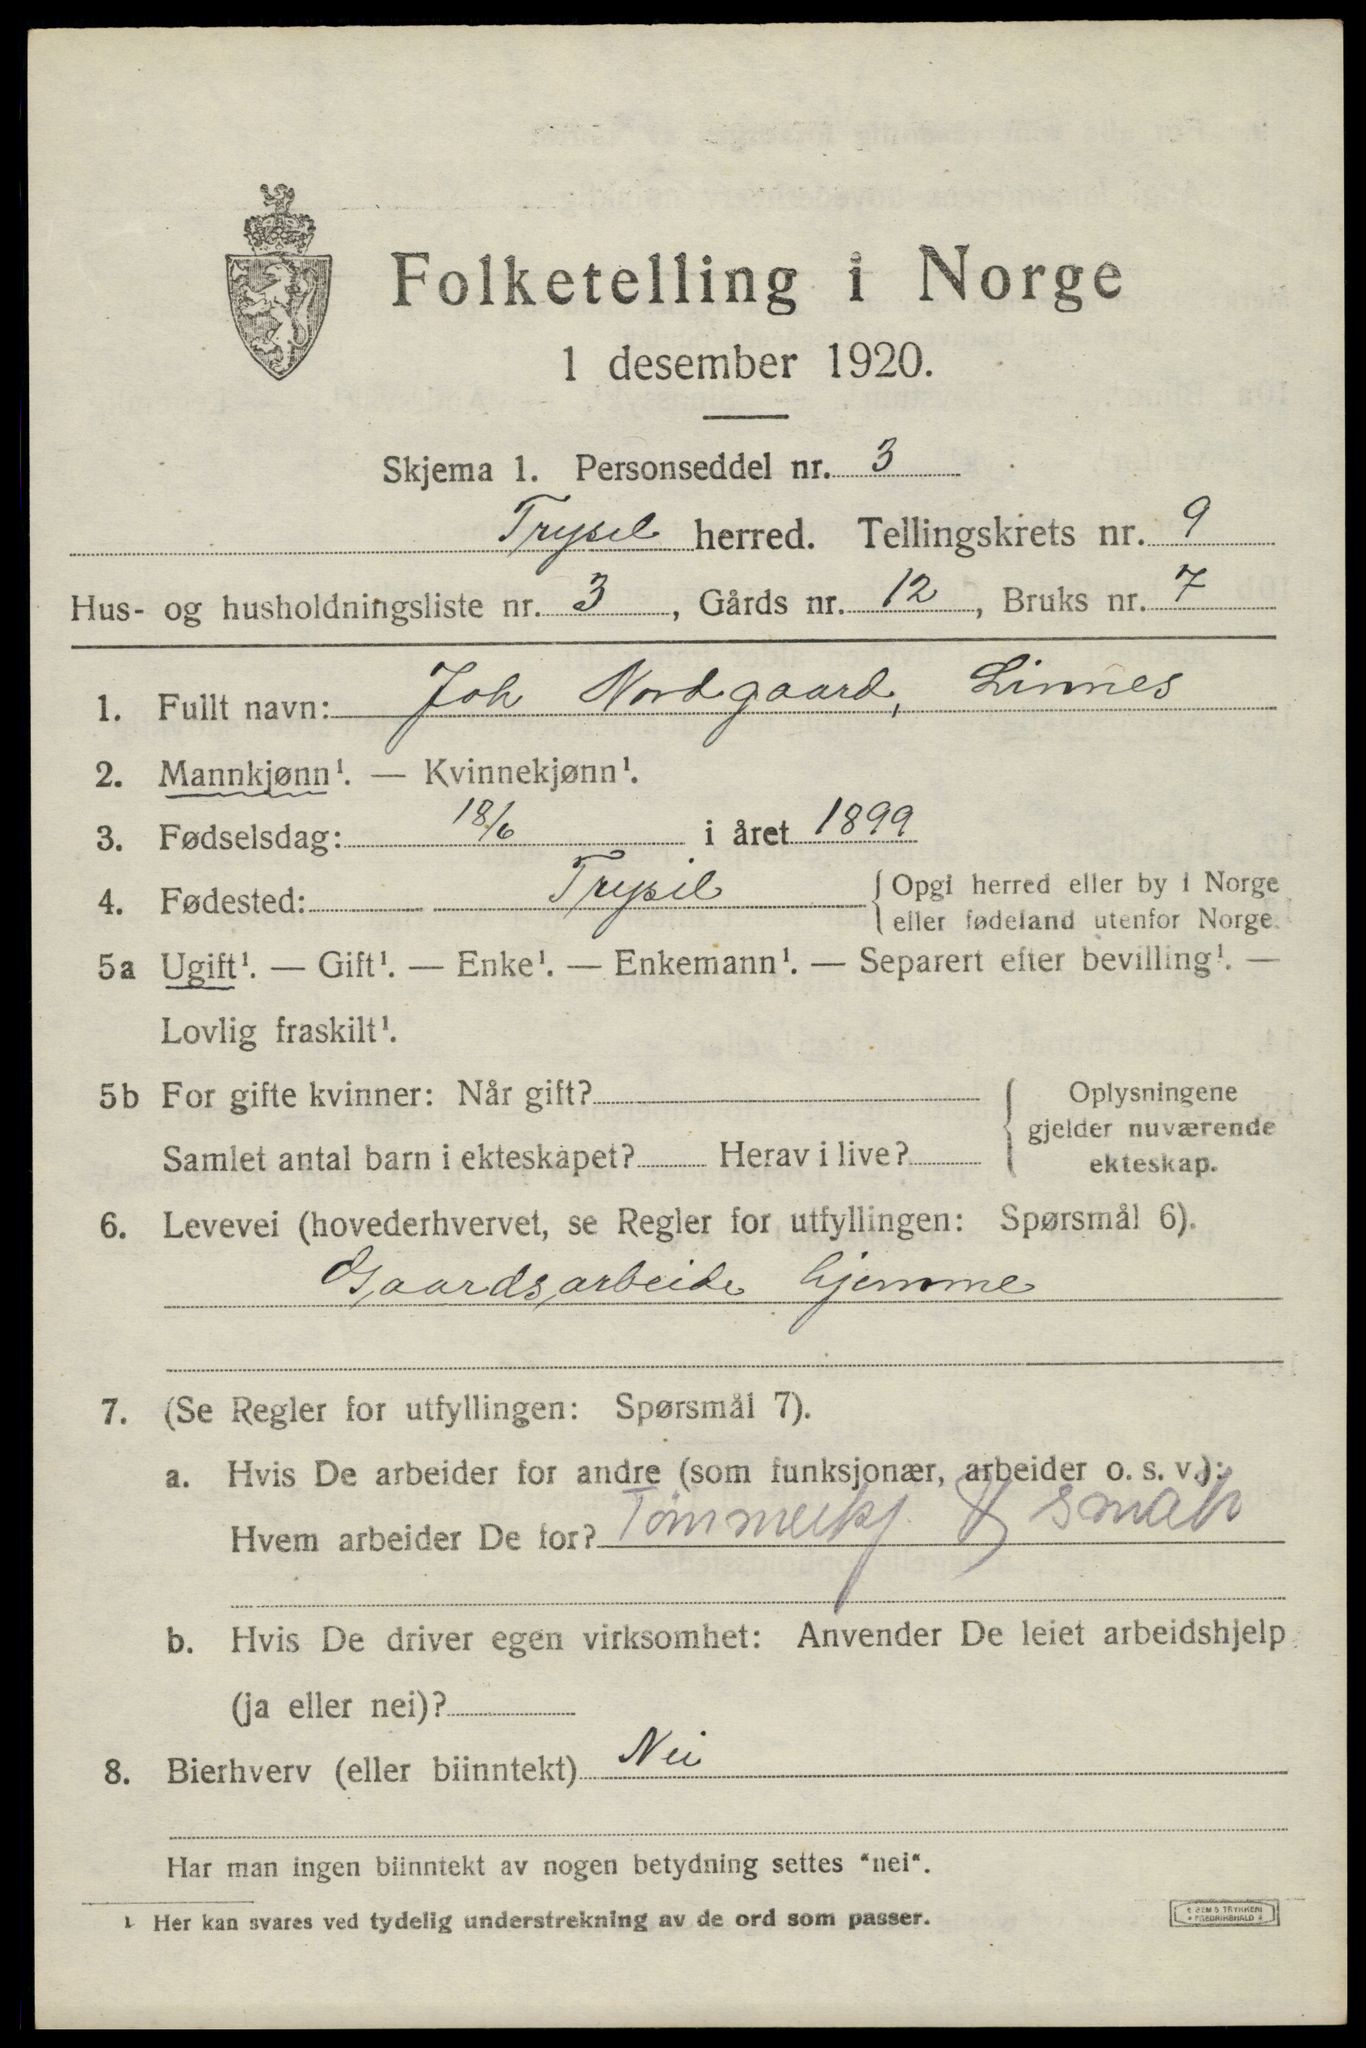 Folketelling i Norge
1 desember 1920.
Skjema 1. Personseddel nr. 3
Trysil herred. Tellingskrets nr. 9
Hus- og husholdningsliste nr. 3, Gårds nr. 12, Bruks nr. 7
1. Fullt navn: Joh Nordgaard, Linnes
2. Mannkjønn¹. — Kvinnekjønn¹.
3. Fødselsdag: 18/6 i året 1899
4. Fødested: Trysil {Opgi herred eller by i Norge
eller fødeland utenfor Norge.
5a Ugift¹. — Gift¹. — Enke¹. — Enkemann¹. — Separert efter bevilling¹. —
Lovlig fraskilt¹.
5b For gifte kvinner: Når gift? Oplysningene
gjelder nuværende
Samlet antal barn i ekteskapet? Herav i live? ekteskap.
6. Levevei (hovederhvervet, se Regler for utfyllingen: Spørsmål 6).
Gaardsarbeide hjemme
7. (Se Regler for utfyllingen: Spørsmål 7).
a. Hvis De arbeider for andre (som funksjonær, arbeider o. s. v.):
Hvem arbeider De for? Tømmerkj.
b. Hvis De driver egen virksomhet: Anvender De leiet arbeidshjelp
(ja eller nei)?
8. Bierhverv (eller biinntekt) Nei
Har man ingen biinntekt av nogen betydning settes "nei".
¹ Her kan svares ved tydelig understrekning av de ord som passer.